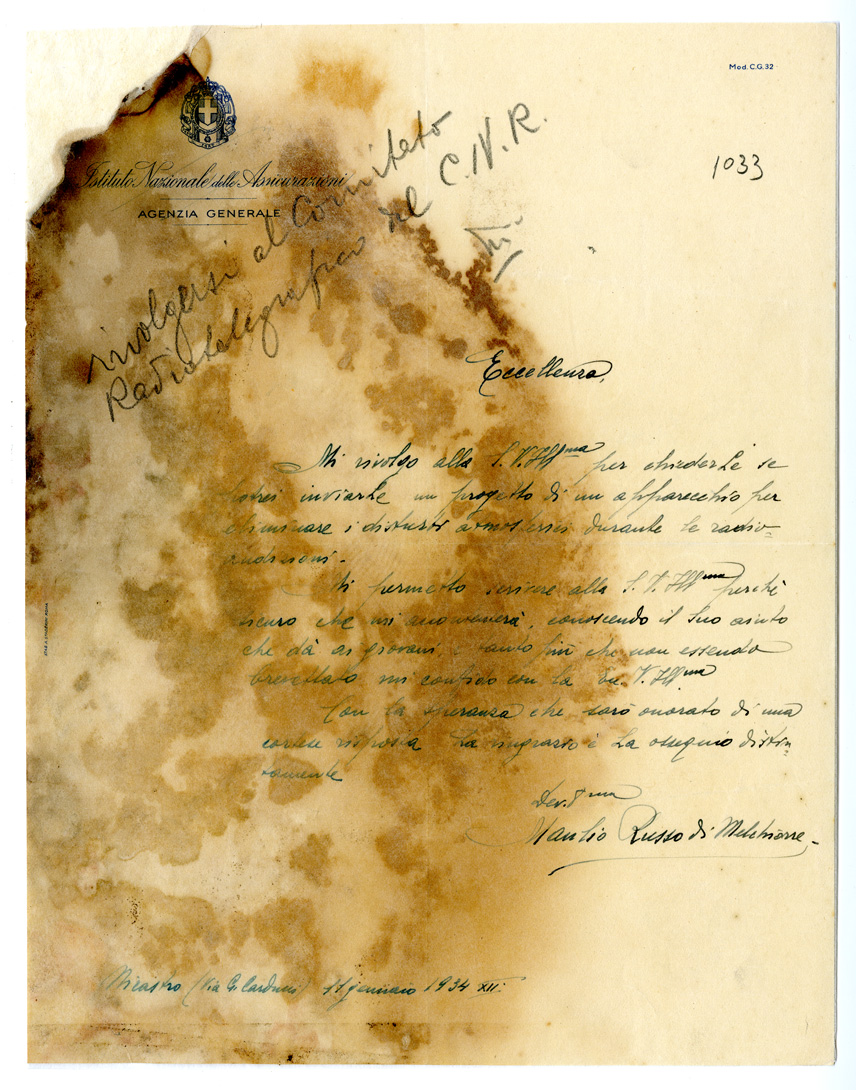 Mod. C.G. 32
1033
Istituto Nazionale delle Assicurazioni
AGENZIA GENERALE
rivolgersi al Comitato
Radiotelegrafico del C.N.R.
Eccellenza,
Mi rivolgo alla S.V.Ill.ma per chiederLe se
potrei inviarLe un progetto di un apparecchio per
eliminare i disturbi atmosferici durante le radio=
audizioni.
Mi permetto scrivere alla S.V.Ill.ma perchè
sicuro che mi accontenerà, conoscendo il Suo aiuto
che dà ai giovani, e tanto più che non essendo
brevettato mi confido con la V.Ill.ma
Con la speranza che sarò onorato di una
cortese risposta La ringrazio e La ossequio distin=
tamente
Dev.mo
Manlio Russo di Melchiorre
Nicastro (Via G. Carducci) 11 gennaio 1934 XII.